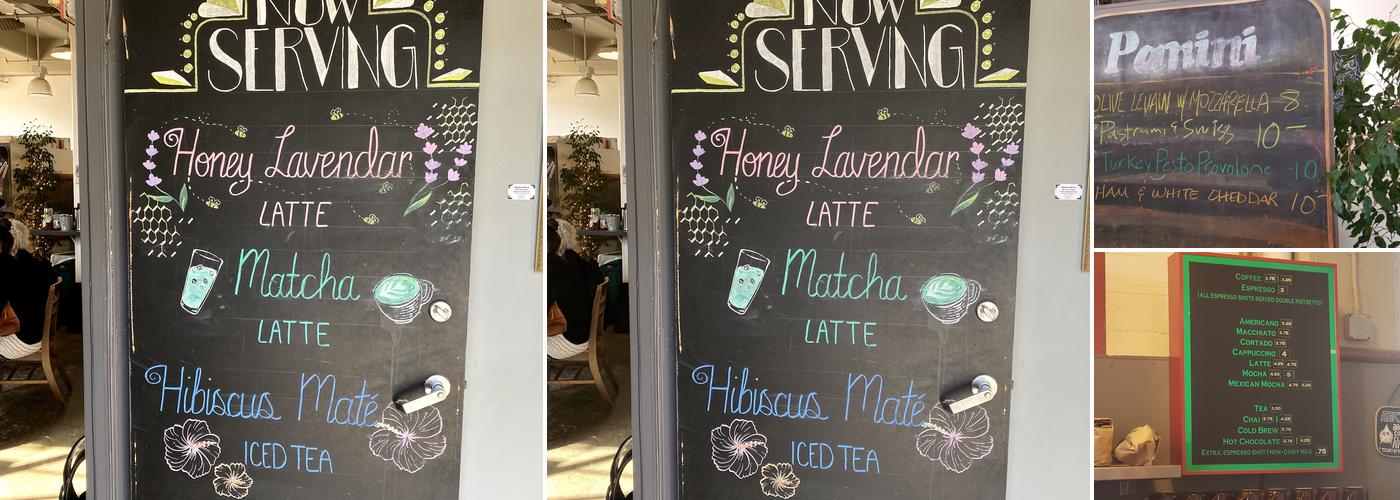 NOW
SERVING
Honey Lavendar
LATTE
Matcha
LATTE
Hibiscus Maté
ICED TEA
NOW
SERVING
Honey Lavendar
LATTE
Matcha
LATTE
Hibiscus Maté
ICED TEA
Panini
OLIVE LEVAIN W/ MOZZARELLA - 8
Pastrami & Swiss 10 -
Turkey Pesto Provolone - 10
HAM & WHITE CHEDDAR 10 -
COFFEE 2.75 | 3.25
ESPRESSO 3
(ALL ESPRESSO SHOTS SERVED DOUBLE RISTRETTO)
AMERICANO 3.25
MACCHIATO 3.75
CORTADO 3.75
CAPPUCCINO 4
LATTE 4.25 4.75
MOCHA 4.50 5
MEXICAN MOCHA 4.75 5.25
TEA 3.50
CHAI 3.75 | 4.25
COLD BREW 3.75
HOT CHOCOLATE 3.75 | 4.25
EXTRA: ESPRESSO SHOT | NON-DAIRY MILK .75